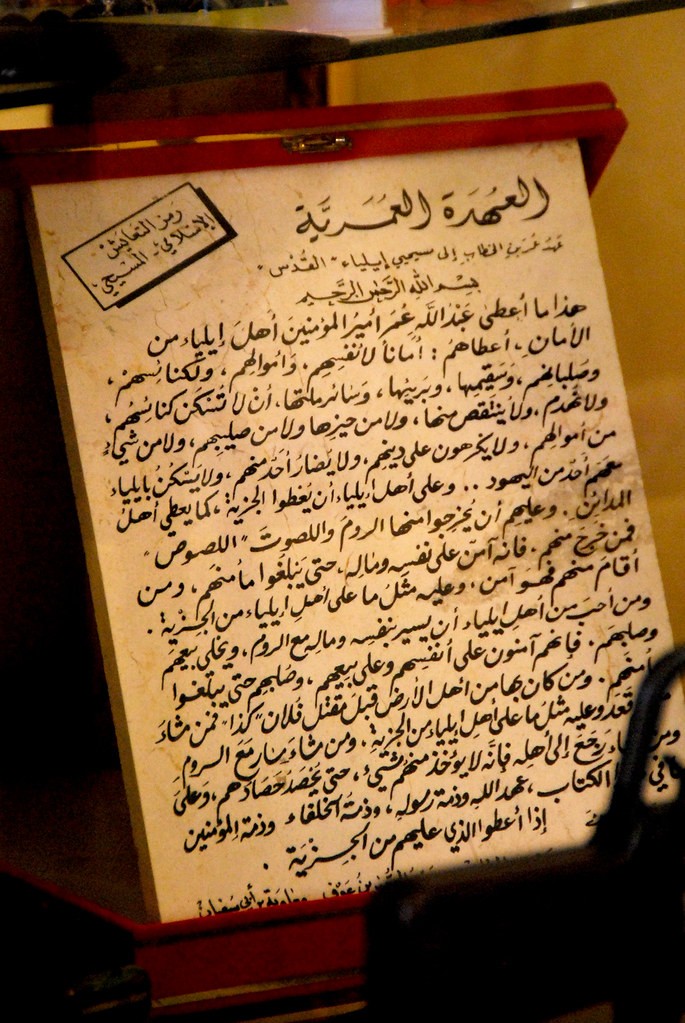 العهدة العمرية
رمز التعايش
الإسلامي - المسيحي
عهد عمر بن الخطاب إلى مسيحيي إيلياء "القدس"
بسم الله الرحمن الرحيم
هذا ما أعطى عبد الله عمر أمير المؤمنين أهل إيلياء من
الأمان، أعطاهم: أمانا لأنفسهم. وأموالهم، ولكنائسهم،
وصلبانهم، وسقيمها، وبريئها، وسائر ملتها، أن لا تسكن كنائسهم،
ولا تهدم، ولا ينتقص منها، ولا من حيزها ولا من صليبهم، ولا من شيء
من أموالهم. ولا يكرهون على دينهم، ولا يضار أحد منهم، ولا يسكن بإيلياء
معهم أحد من اليهود .. وعلى أهل إيلياء أن يعطوا الجزية، كما يعطي أهل
المدائن. وعليهم أن يخرجوا منها الروم واللصوت "اللصوص"
فمن خرج منهم. فإنه آمن على نفسه وماله، حتى يبلغوا مأمنهم، ومن
أقام منهم فهو آمن، وعليه مثل ما على أهل إيلياء من الجزية.
ومن أحب من أهل إيلياء أن يسير بنفسه وماله مع الروم، ويخلي بيعهم
وصلبهم. فإنهم آمنون على أنفسهم وعلى بيعهم، وصلبهم حتى يبلغوا
أمنهم. ومن كان بها من أهل الأرض قبل مقتل فلان "كذا" فمن شاء
قعد وعليه مثل ما على أهل إيلياء من الجزية. ومن شاء سار مع الروم
ومن رجع إلى أهله فإنه لا يؤخذ منهم شيء، حتى يحصد حصادهم، وعلى
ما في الكتاب، عهد الله وذمة رسوله، وذمة الخلفاء وذمة المؤمنين
إذا أعطوا الذي عليهم من الجزية.
بن عوف ومعاوية بن أبي سفيان